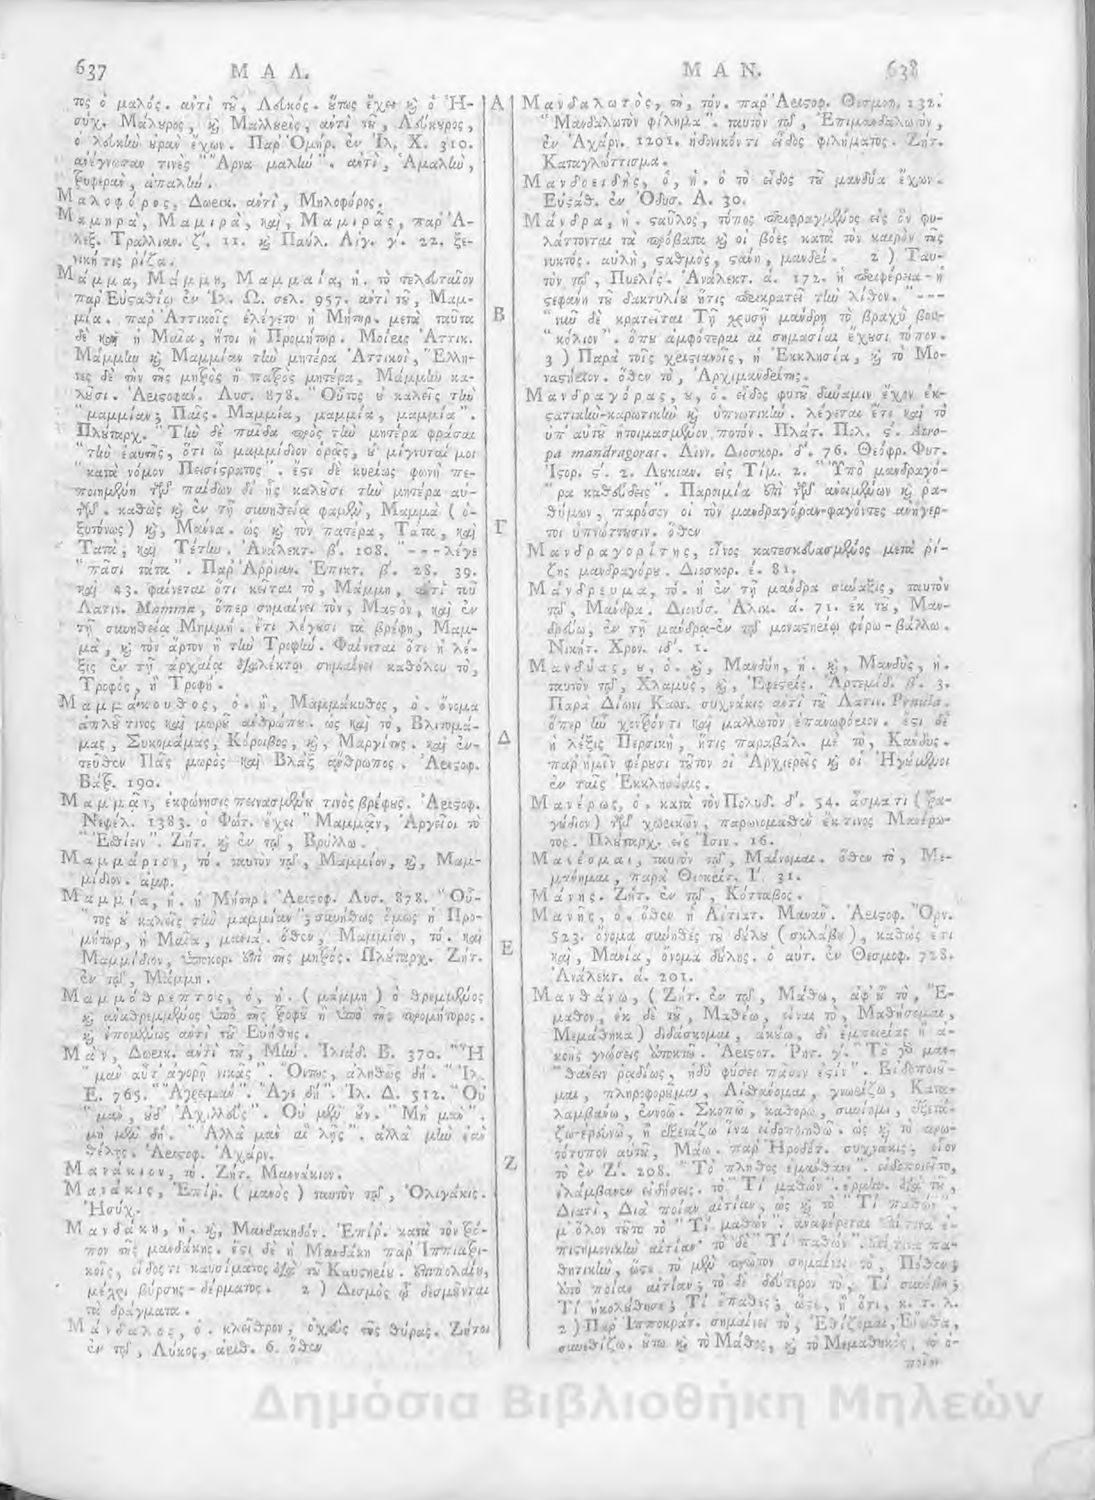 637 ΜΑΛ.
τος ὁ μαλός. ἀντὶ τȣ͂, Λευκός. ȣ̔́τως ἔχει κ̀ ὁ Ἡ-
συχ. Μάλȣρος, κ̀ Μαλλȣρεὶς, ἀντὶ τȣ͂, Λεύκȣρος,
ὁ λευκὴν ȣ̓ρὰν ἔχων. Παρ' Ὁμήρ. ἐν Ἰλ. Χ. 310.
ἀνέγνωσαν τινὲς "Ἄρνα μαλὴν". ἀντὶ, Ἁμαλὴν,
τρυφερὰν, ἁπαλήν.
Μαλοφόρος, Δωρικ. ἀντὶ, Μηλοφόρος.
Μαμηρὰ, Μαμιρὰ, καὶ, Μαμιρὰς, παρ' Ἀ-
λεξ. Τραλλιαν. ζ'. 11. κ̀ Παύλ. Αἰγ. γ. 22. ξε-
νική τις ῥίζα.
Μάμμα, Μάμμη, Μαμμαία, ἡ. τὸ τελευταῖον
παρ' Εὐσταθίῳ ἐν Ἰλ. Ω. σελ. 957. ἀντὶ τȣ͂, Μαμ-
μία. παρ' Ἀττικοῖς ἐλέγετο ἡ Μήτηρ. μετὰ ταῦτα
δὲ καὶ ἡ Μαῖα, ἤτοι ἡ Προμήτωρ. Μοῖρις Ἀττικ.
Μάμμην κ̀ Μαμμίαν τὴν μητέρα Ἀττικοὶ, Ἕλλη-
νες δὲ τὴν τῆς μητρὸς ἢ πατρὸς μητέρα, Μάμμην κα-
λȣ͂σι. Ἀριστοφαν. Λυσ. 878. "Οὗτος ȣ̓ καλεῖς τὴν
"μαμμίαν; Παῖς. Μαμμία, μαμμία, μαμμία".
Πλȣ́ταρχ. "Τὴν δὲ παῖδα πρὸς τὴν μητέρα φράσαι
"τὴν ἑαυτῆς, ὅτι ὦ μαμμίδιον ὁρᾷς, ȣ̓ μίγνυταί μοι
"κατὰ νόμον Πεισίστρατος". ἔστι δὲ κυρίως φωνὴ πε-
ποιημένη τῶν παίδων δι' ἧς καλȣ͂σι τὴν μητέρα αὐ-
τῶν. καθὼς κ̀ ἐν τῇ συνηθείᾳ φαμὲν, Μαμμὰ (ὀ-
ξυτόνως) κ̀, Μάννα. ὡς κ̀ τὸν πατέρα, Τάτα, καὶ
Τατᾶ, καὶ Τέτην. Ἀνάλεκτ. β'. 108. "---λέγε
"πᾶσι τάτα". Παρ' Ἀῤῥιαν. Ἐπικτ. β'. 28. 39.
καὶ 43. φαίνεται ὅτι κεῖται τὸ, Μάμμη, ἀντὶ τȣ͂
Λατιν. Mamma, ὅπερ σημαίνει τὸν, Μαστὸν, καὶ ἐν
τῇ συνηθείᾳ Μημμή. ἔτι λέγȣσι τὰ βρέφη, Μαμ-
μὰ, κ̀ τὸν ἄρτον ἢ τὴν Τροφήν. Φαίνεται ὅτι ἡ λέ-
ξις ἐν τῇ ἀρχαίᾳ διαλέκτῳ σημαίνει καθόλου τὸ,
Τροφὸς, ἢ Τροφή.
Μαμμάκουθος, ὁ. ἢ, Μαμμάκυθος, ὁ. ὄνομα
ἁπλȣ͂ τινος καὶ μωρȣ͂ ἀνθρώπȣ. ὡς καὶ τὸ, Βλιτομά-
μας, Συκομάμας, Κόροιβος, κ̀, Μαργίτης. καὶ ἐν-
τεῦθεν Πᾶς μωρὸς καὶ Βλὰξ ἄνθρωπος. Ἀριστοφ.
Βάτρ. 190.
Μαμμᾶν, ἐκφώνησις πεινασμένȣ τινὸς βρέφȣς. Ἀριστοφ.
Νεφέλ. 1383. ὁ Φώτ. ἔχει "Μαμμᾶν, Ἀργεῖοι τὸ
"Ἐσθίειν". Ζήτ. κ̀ ἐν τῷ, Βρύλλω.
Μαμμάριον, τό. ταυτὸν τῷ, Μαμμίον, κ̀, Μαμ-
μίδιον. ἀμφ.
Μαμμία, ἡ. ἡ Μήτηρ. Ἀριστοφ. Λυσ. 878. "Οὗ-
"τος ȣ̓ καλεῖς τὴν μαμμίαν"; συνήθως ὅμως ἡ Προ-
μήτωρ, ἡ Μαῖα, μανιά. ὅθεν, Μαμμίον, τό. καὶ
Μαμμίδιον, ὑποκορ. ἐπὶ τῆς μητρός. Πλȣ́ταρχ. Ζήτ.
ἐν τῷ, Μάμμη.
Μαμμόθρεπτος, ὁ, ἡ. (μάμμη) ὁ θρεμμένος
κ̀ ἀναθρεμμένος ὑπὸ τῆς τροφȣ͂ ἢ ὑπὸ τῆς προμήτορος.
κ̀ ἑπομένως ἀντὶ τȣ͂ Εὐήθης.
Μὰν, Δωρικ. ἀντὶ τȣ͂, Μήν. Ἰλιάδ. Β. 370. "Ἦ
"μὰν αὖτ' ἀγορῇ νικᾷς". Ὄντως, ἀληθῶς δή. "Ἰλ.
Ε. 765. "Ἄγρει μάν". "Ἄγε δή". Ἰλ. Δ. 512. "Οὐ
"μὰν, ȣ̓δ' Ἀχιλλεὺς". Οὐ μὲν ȣ̓͂ν. "Μὴ μὰν".
μὴ μὲν δή. "Ἀλλὰ μὰν αἰ λῇς". ἀλλὰ μὴν ἐὰν
θέλῃς. Ἀριστοφ. Ἀχάρν.
Μανάκιον, τό. Ζήτ. Μαννάκιον.
Μανάκις, Ἐπίρ. (μανὸς) ταυτὸν τῷ, Ὀλιγάκις.
Ἡσύχ.
Μανδάκη, ἡ. κ̀, Μανδακηδόν. Ἐπίρ. κατὰ τὸν τρό-
πον τῆς μανδάκης. ἔστι δὲ ἡ Μανδάκη παρ' Ἱππιατρι-
κοῖς, εἶδός τι καυσίματος διὰ τȣ͂ Καυστηρίȣ. ἐπιπολαίȣ,
μέχρι βύρσης-δέρματος. 2) Δεσμὸς ᾧ δεσμȣ͂νται
τὰ δράγματα.
Μάνδαλος, ὁ. κλεῖθρον, ὀχεὺς τῆς θύρας. Ζήτει
ἐν τῷ, Λύκος, ἀριθ. 6. ὅθεν
Α
Β
Γ
Δ
Ε
Ζ
ΜΑΝ. 638
Μανδαλωτὸς, τὴ, τόν. παρ' Ἀριστοφ. Θεσμοφ. 132.
"Μανδαλωτὸν φίλημα". ταυτὸν τῷ, Ἐπιμανδαλωτὸν,
ἐν Ἀχάρν. 1201. ἡδονικόν τι εἶδος φιλήματος. Ζήτ.
Καταγλώττισμα.
Μανδοειδὴς, ὁ, ἡ. ὁ τὸ εἶδος τȣ͂ μανδύα ἔχων.
Εὐστάθ. ἐν Ὀδυσ. Α. 30.
Μάνδρα, ἡ. σταῦλος, τόπος περιφραγμένος εἰς ὃν φυ-
λάττονται τὰ πρόβατα κ̀ οἱ βόες κατὰ τὸν καιρὸν τῆς
νυκτός. αὐλὴ, σταθμὸς, στάνη, μανδρί. 2) Ταυ-
τὸν τῷ, Πυελίς. Ἀνάλεκτ. ά. 172. ἡ περιφέρεια-ἡ
στεφάνη τȣ͂ δακτυλίȣ ἥτις περικρατεῖ τὴν λίθον. "---
"νῦν δὲ κρατεῖται Τῇ χρυσῇ μάνδρῃ τὸ βραχὺ βου-
"κόλιον". ὅπȣ ἀμφότεραι αἱ σημασίαι ἔχȣσι τόπον.
3) Παρὰ τοῖς χριστιανοῖς, ἡ Ἐκκλησία, κ̀ τὸ Μο-
ναστήριον. ὅθεν τὸ, Ἀρχιμανδρίτης.
Μανδραγόρας, ȣ, ὁ. εἶδος φυτȣ͂ δύναμιν ἔχον ἐκ-
στατικὴν-καρωτικὴν κ̀ ὑπνωτικήν. λέγεται ἔτι καὶ τὸ
ὑπ' αὐτȣ͂ ἡτοιμασμένον ποτόν. Πλάτ. Πολ. ς'. Atro-
pa mandragorae. Λινν. Διοσκορ. δ'. 76. Θεόφρ. Φυτ.
Ἱστορ. ς'. 2. Λȣκιαν. εἰς Τίμ. 2. "Ὑπὸ μανδραγό-
"ρᾳ καθεύδεις". Παροιμία ἐπὶ τῶν ἀνειμένων κ̀ ῥα-
θύμων, παρόσον οἱ τὸν μανδραγόραν-φαγόντες ἀνήγερ-
τοι ὑπνώττȣσιν. ὅθεν
Μανδραγορίτης, οἶνος κατεσκευασμένος μετὰ ῥί-
ζης μανδραγόρȣ. Διοσκορ. έ. 81.
Μάνδρευμα, τό. ἡ ἐν τῇ μάνδρᾳ σύναξις, ταυτὸν
τῷ, Μάνδρα. Διονύσ. Ἁλικ. ά. 71. ἐκ τȣ͂, Μαν-
δρεύω, ἐν τῇ μάνδρᾳ-ἐν τῷ μοναστηρίῳ φέρω-βάλλω.
Νικήτ. Χρον. ιδ'. 1.
Μανδύας, ȣ, ὁ. κ̀, Μανδύη, ἡ. κ̀, Μανδὺς, ἡ.
ταυτὸν τῷ, Χλαμὺς, κ̀, Ἐφεστρίς. Ἀρτεμίδ. β'. 3.
Παρὰ Δίωνι Κασσ. συχνάκις ἀντὶ τȣ͂ Λατιν. Pænula.
ὅπερ ἦν χονδρόν τι καὶ μαλλωτὸν ἐπανωφόριον. ἔστι δὲ
ἡ λέξις Περσικὴ, ἥτις παραβάλ. μὲ τὸ, Κάνδυς.
παρ' ἡμῖν φέρȣσι τȣ͂τον οἱ Ἀρχιερεῖς κ̀ οἱ Ἡγȣ́μενοι
ἐν ταῖς Ἐκκλησίαις.
Μανέρως, ὁ. κατὰ τὸν Πολυδ. δ'. 54. ᾆσμά τι (τρα-
γύδιον) τῶν χωρικῶν, παρωνομασθὲν ἔκ τινος Μανέρω-
τος. Πλȣ́ταρχ. εἰς Ἴσιν. 16.
Μανέομαι, ταυτὸν τῷ, Μαίνομαι. ὅθεν τὸ, Με-
μάνημαι, παρὰ Θεοκρίτ. Ι'. 31.
Μάνης. Ζήτ. ἐν τῷ, Κότταβος.
Μανῆς, ὁ. ὅθεν ἡ Αἰτιατ. Μανᾶν. Ἀριστοφ. Ὄρν.
523. ὄνομα συνηθὲς τȣ͂ δȣ́λȣ (σκλάβȣ), καθὼς ἔτι
καὶ, Μανία, ὄνομα δȣ́λης. ὁ αὐτ. ἐν Θεσμοφ. 728.
Ἀνάλεκτ. ά. 201.
Μανθάνω, (Ζήτ. ἐν τῷ, Μάθω, ἀφ' ȣ̔͂ τὸ, Ἔ-
μαθον, ἐκ δὲ τȣ͂, Μαθέω, εἶναι τὸ, Μαθήσομαι,
Μεμάθηκα) διδάσκομαι, ἀκȣ́ω, δι' ἐμπειρίας ἢ ἀ-
κοῆς γνώσεις ἀποκτῶ. Ἀριστοτ. Ρητ. γ'. "Τὸ γὰρ μαν-
"θάνειν ῥαδίως, ἡδὺ φύσει πᾶσιν ἐστίν". Εἰδοποιȣ͂-
μαι, πληροφορȣ͂μαι, Αἰσθάνομαι, γνωρίζω, Κατα-
λαμβάνω, ἐννοῶ. Σκοπῶ, καθορῶ, συνίημι, ἐξετά-
ζω-ἐρευνῶ, ἢ ἐξετάζω ἵνα εἰδοποιηθῶ. ὡς κ̀ τὸ πρω-
τότυπον αὐτȣ͂, Μάω. παρ' Ἡροδότ. συχνάκις, οἷον
τὸ ἐν Ζ'. 208. "Τὸ πλῆθος ἐμάνθανε". εἰδοποιεῖτο,
ἐλάμβανεν εἰδήσεις. τὸ "Τί μαθὼν". ἑρμην. διὰ τȣ͂,
Διατί, Διὰ ποίαν αἰτίαν, ὡς κ̀ τὸ "Τί παθὼν".
μ' ὅλον τȣ͂το τὸ "Τί μαθὼν". ἀναφέρεται ἐπί τινα ἐ-
πιστημονικὴν αἰτίαν· τὸ δὲ "Τί παθὼν". ἐπί τινα πα-
θητικὴν, ὥστε τὸ μὲν πρῶτον σημαίνει τὸ, Πόθεν;
ὑπὸ ποίαν αἰτίαν; τὸ δὲ δεύτερον τὸ, Τί συνέβη;
Τί ἠκολȣ́θησε; Τί ἔπαθες; ὥστε, ἢ ὅτι, κ. τ. λ.
2) Παρ' Ἱπποκράτ. σημαίνει τὸ, Ἐθίζομαι, Εἴωθα,
συνεθίζω. ȣ̔́τω κ̀ τὸ Μάθος, κ̀ τὸ Μεμαθηκὸς, τὸ ὁ-
ποῖον
Δημόσια Βιβλιοθήκη Μηλεών